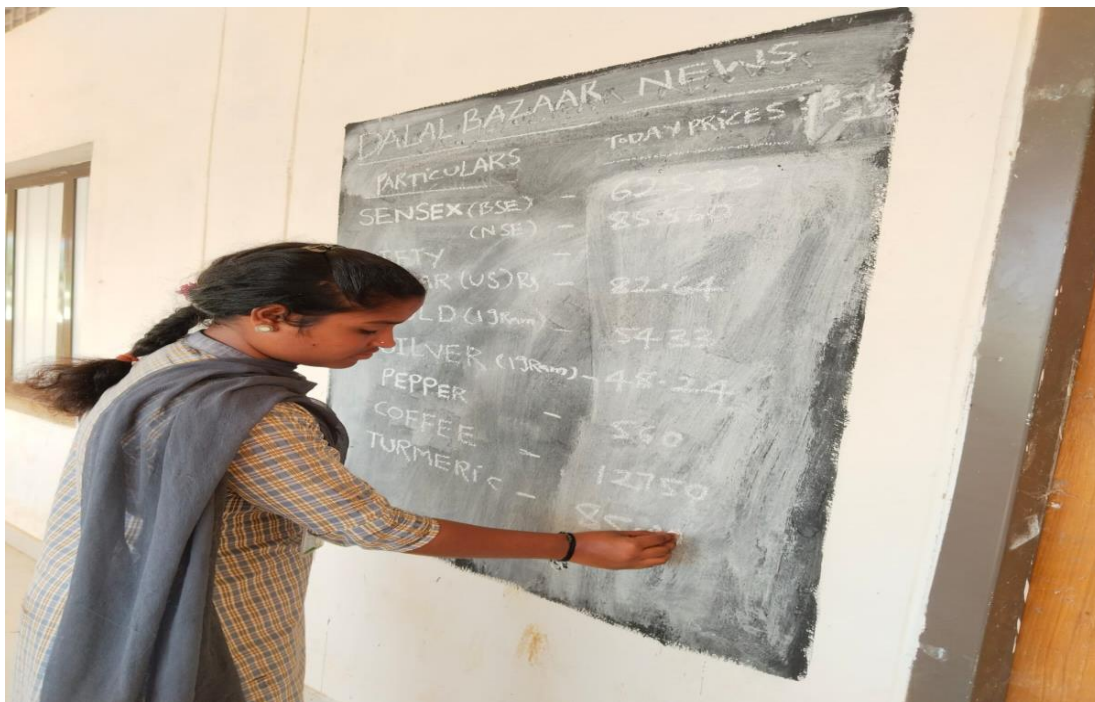 DALAL BAZAAR NEWS
PARTICULARS TODAY PRICES :
SENSEX (BSE) -
(NSE) -
-
(US) Rs - 82.64
(1gRam) - 5433
SILVER (1gRam) - 48.24
PEPPER - 560
COFFEE - 12750
TURMERIC -